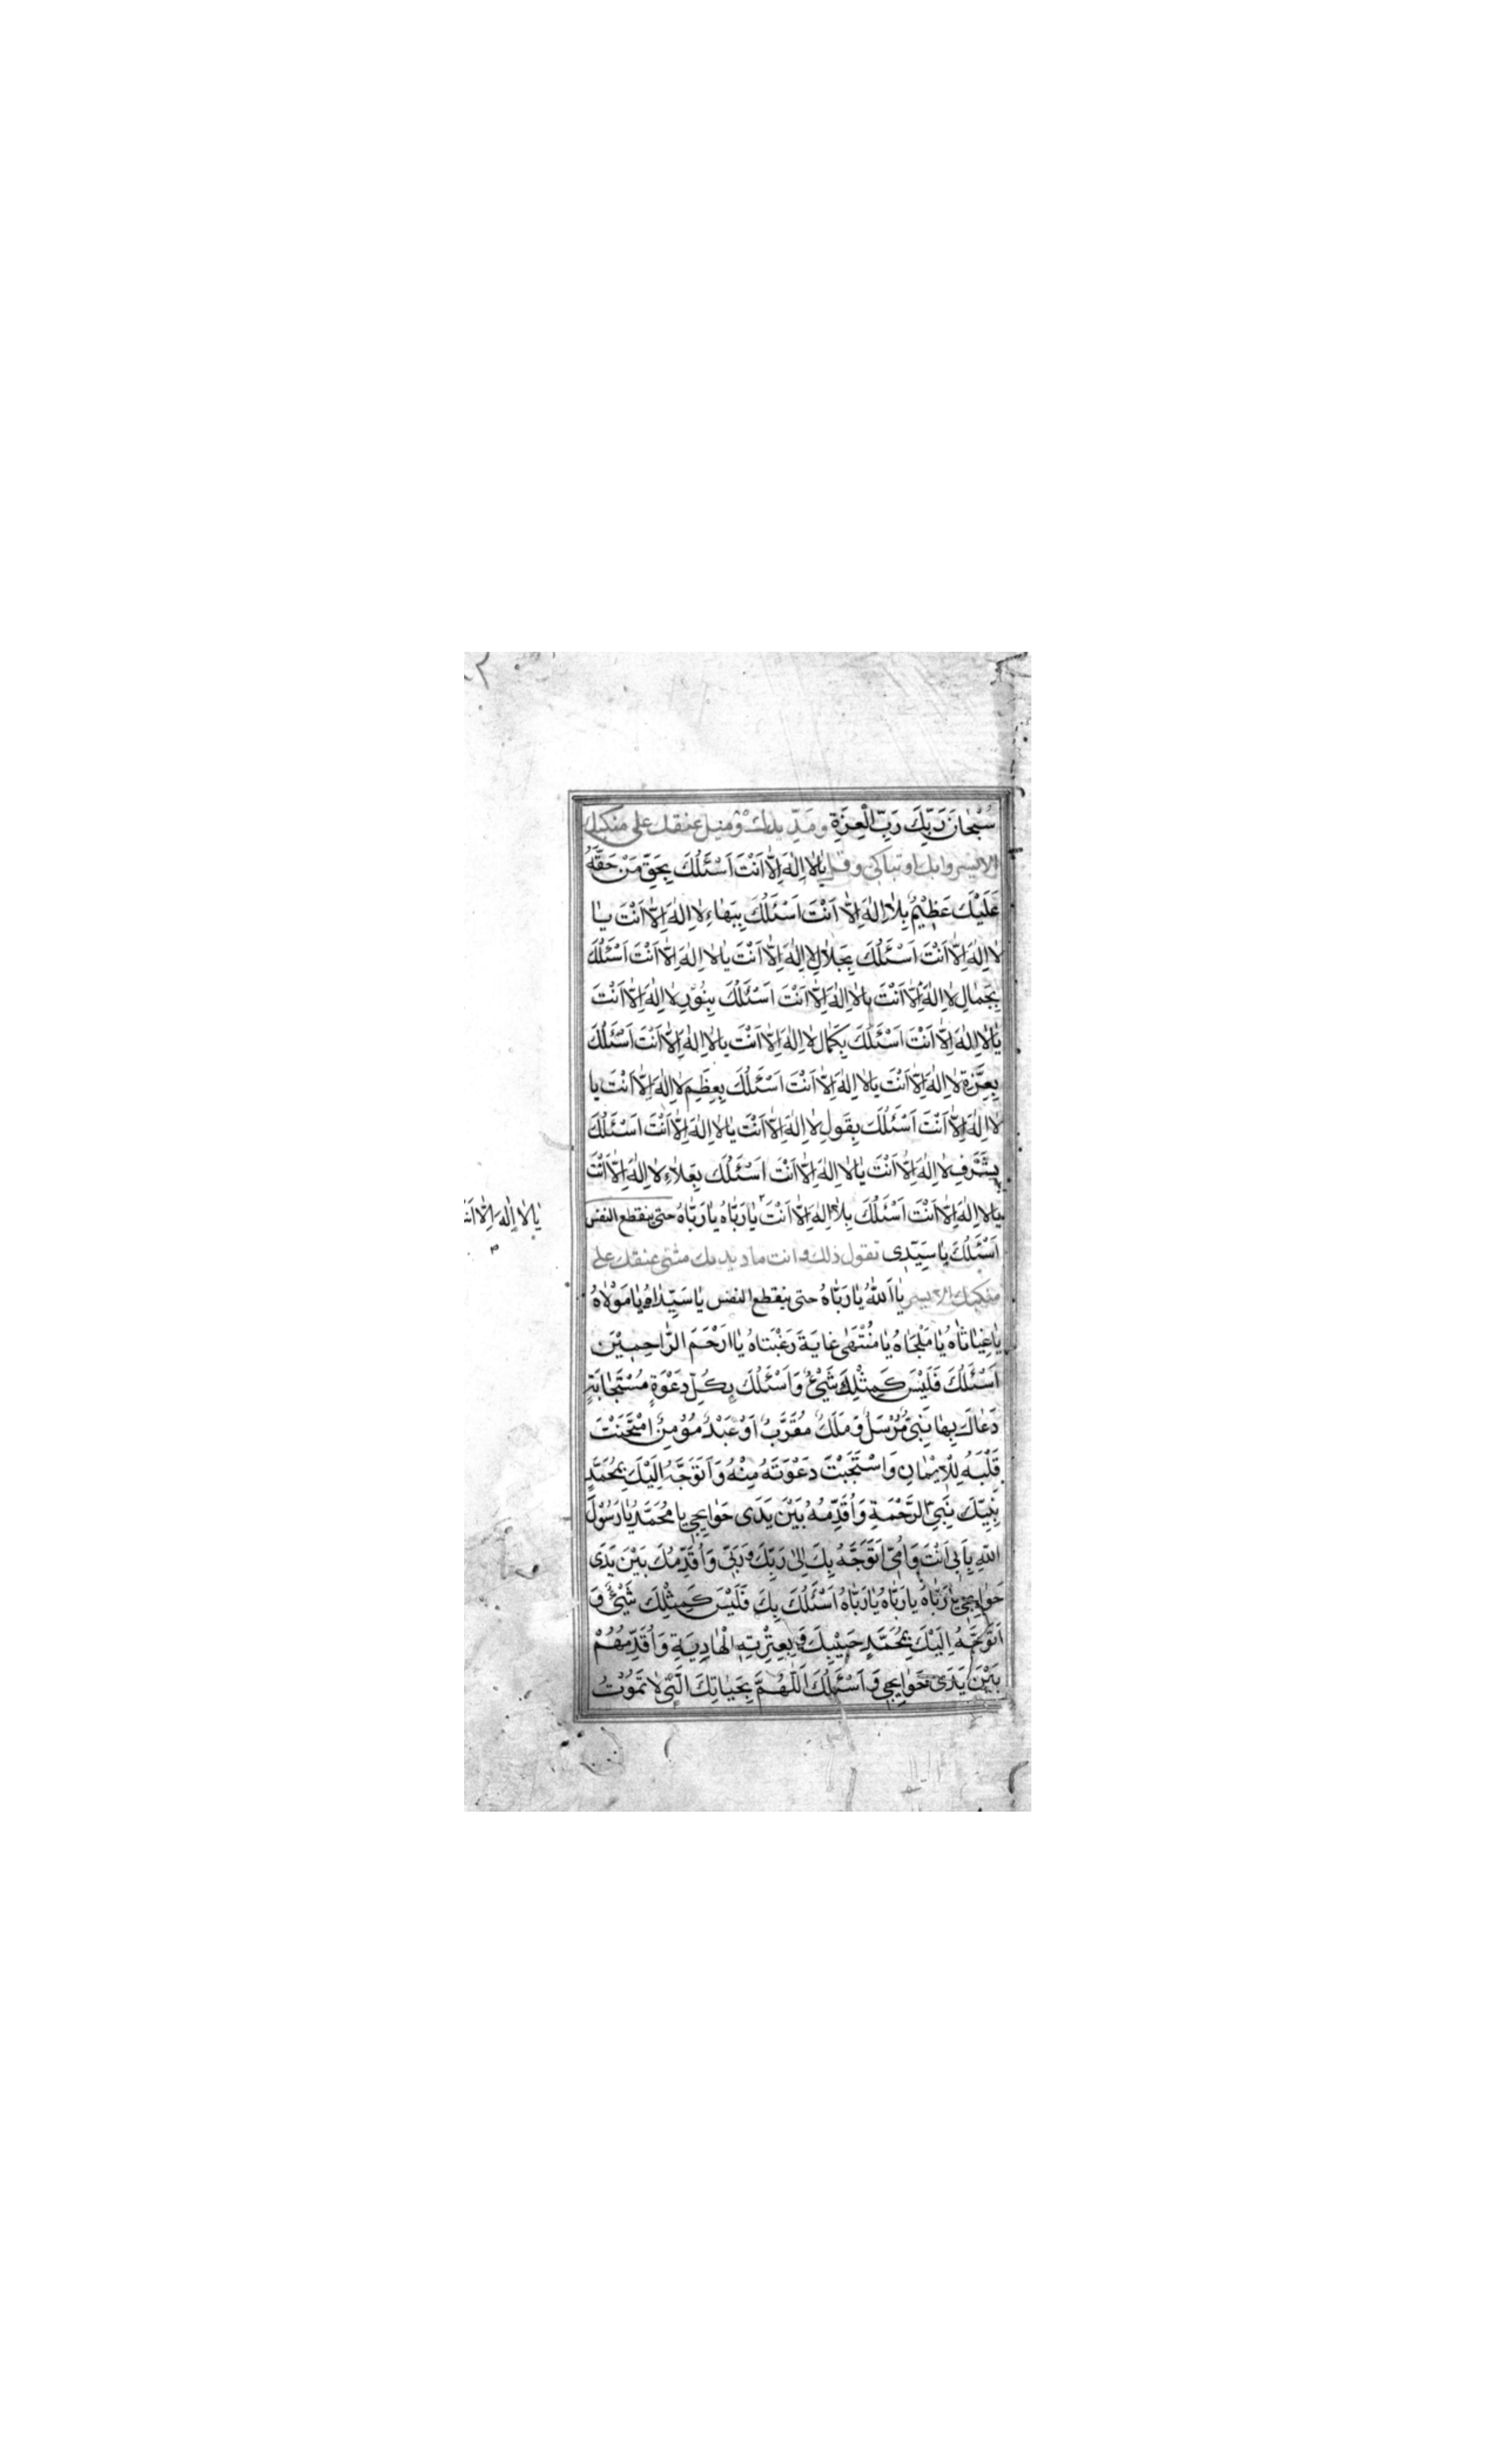 سُبْحَانَ رَبِّكَ رَبِّ الْعِزَّةِ و مدّ يديك و ميل عنقك على منكبك
الايسر وابك او تباكى و قل يَا لَا اِلٰهَ اِلَّا اَنْتَ اَسْئَلُكَ بِحَقِّ مَنْ حَقُّهُ
عَلَيْكَ عَظِيْمٌ بِلَا اِلٰهَ اِلَّا اَنْتَ اَسْئَلُكَ بِبَهَاءِ لَا اِلٰهَ اِلَّا اَنْتَ يَا
لَا اِلٰهَ اِلَّا اَنْتَ اَسْئَلُكَ بِجَلَالِ لَا اِلٰهَ اِلَّا اَنْتَ يَا لَا اِلٰهَ اِلَّا اَنْتَ اَسْئَلُكَ
بِجَمَالِ لَا اِلٰهَ اِلَّا اَنْتَ يَا لَا اِلٰهَ اِلَّا اَنْتَ اَسْئَلُكَ بِنُوْرِ لَا اِلٰهَ اِلَّا اَنْتَ
يَا لَا اِلٰهَ اِلَّا اَنْتَ اَسْئَلُكَ بِكَمَالِ لَا اِلٰهَ اِلَّا اَنْتَ يَا لَا اِلٰهَ اِلَّا اَنْتَ اَسْئَلُكَ
بِعِزَّةِ لَا اِلٰهَ اِلَّا اَنْتَ يَا لَا اِلٰهَ اِلَّا اَنْتَ اَسْئَلُكَ بِعِظَمِ لَا اِلٰهَ اِلَّا اَنْتَ يَا
لَا اِلٰهَ اِلَّا اَنْتَ اَسْئَلُكَ بِقَولِ لَا اِلٰهَ اِلَّا اَنْتَ يَا لَا اِلٰهَ اِلَّا اَنْتَ اَسْئَلُكَ
بِشَرَفِ لَا اِلٰهَ اِلَّا اَنْتَ يَا لَا اِلٰهَ اِلَّا اَنْتَ اَسْئَلُكَ بِعَلَاءِ لَا اِلٰهَ اِلَّا اَنْتَ
يَا لَا اِلٰهَ اِلَّا اَنْتَ اَسْئَلُكَ بِلَا اِلٰهَ اِلَّا اَنْتَ يَا رَبَّاهُ يَا رَبَّاهُ يَا رَبَّاهُ حتى ينقطع النفس
يَا لَا اِلٰهَ اِلَّا
اَسْئَلُكَ يَا سَيِّدِى تقول ذلك و انت ماد يديك مثنى عنقك على
منكبك الايسر يَا اَللّٰهُ يَا رَبَّاهُ حتى ينقطع النفس يَا سَيِّدَاهُ يَا مَوْلَاهُ
يَا غِيَاثَاهُ يَا مَلْجَاهُ يَا مُنْتَهٰى غَايَةَ رَغْبَتَاهُ يَا اَرْحَمَ الرَّاحِمِيْنَ
اَسْئَلُكَ فَلَيْسَ كَمِثْلِكَ شَيْءٌ وَ اَسْئَلُكَ بِكُلِّ دَعْوَةٍ مُسْتَجَابَةٍ
دَعَاكَ بِهَا نَبِىٌّ مُرْسَلٌ وَ مَلَكٌ مُقَرَّبٌ اَوْ عَبْدٌ مُؤْمِنٌ امْتَحَنْتَ
قَلْبَهُ لِلْاِيْمَانِ وَ اسْتَجَبْتَ دَعْوَتَهُ مِنْهُ وَ اَتَوَجَّهُ اِلَيْكَ بِمُحَمَّدٍ
نَبِيِّكَ نَبِىِّ الرَّحْمَةِ وَ اُقَدِّمُهُ بَيْنَ يَدَى حَوَائِجِى يَا مُحَمَّدُ يَا رَسُوْلَ
اللّٰهِ بِاَبِى اَنْتَ وَ اُمِّى اَتَوَجَّهُ بِكَ اِلٰى رَبِّكَ وَ رَبِّى وَ اُقَدِّمُكَ بَيْنَ يَدَى
حَوَائِجِى يَا رَبَّاهُ يَا رَبَّاهُ يَا رَبَّاهُ اَسْئَلُكَ بِكَ فَلَيْسَ كَمِثْلِكَ شَيْءٌ وَ
اَتَوَجَّهُ اِلَيْكَ بِمُحَمَّدٍ حَبِيْبِكَ وَ بِعِتْرَتِهِ الْهَادِيَةِ وَ اُقَدِّمُهُمْ
بَيْنَ يَدَى حَوَائِجِى وَ اَسْئَلُكَ اَللّٰهُمَّ بِحَيَاتِكَ الَّتِى لَا تَمُوْتُ